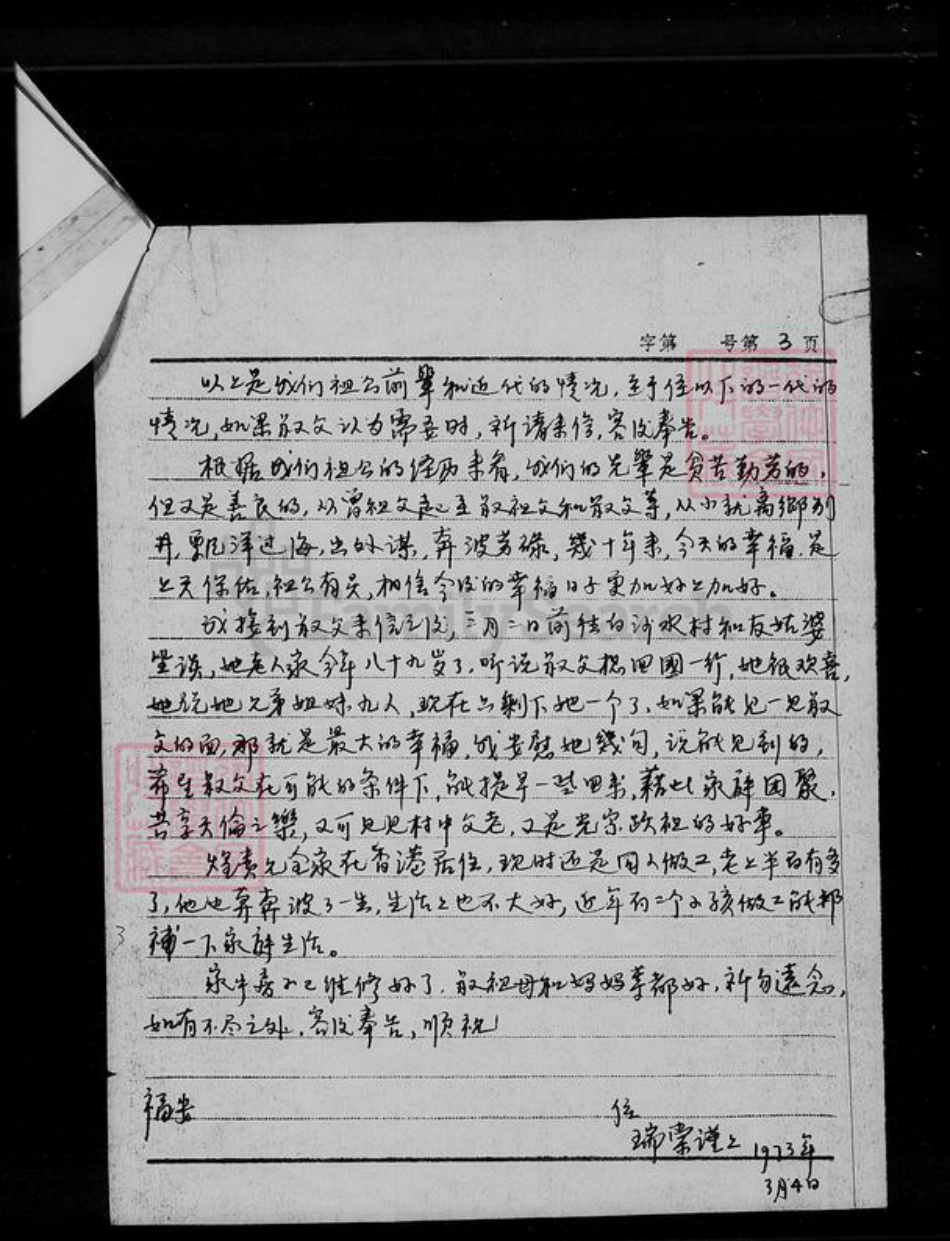 字第 号第 3 页
以上是我们祖公前辈和近代的情况，至于侄以下的一代的
情况，如果叔父认为需要时，祈请来信，容后奉告。
根据我们祖公的经历来看，我们的先辈是贫苦勤劳的，
但又是善良的，从曾祖父起至叔祖父和叔父等，从小就离鄉别
井，飘洋过海，出外谋，奔波劳碌，幾十年来，今天的幸福，是
上天保佑，祖公有灵，相信今后的幸福日子更加好上加好。
我接到叔父来信之后，三月二日前往白沙水村和友姑婆
坐谈，她老人家今年八十九岁了，听说叔父想回國一行，她很欢喜，
她说她兄弟姐妹九人，现在只剩下她一个了，如果能见一见叔
父的面，那就是最大的幸福，我安慰她幾句，说能见到的，
希望叔父在可能的条件下，能提早一些回来，藉此家庭团聚，
共享天倫之樂，又可见见村中父老，又是光宗跃祖的好事。
兄全家在香港居住，现时还是同人做工，老上半百有多
了，他也奔奔波了一生，生活上也不大好，近年有二个小孩做工能帮
補一下家庭生活。
家中房小已维修好了，叔祖母和妈妈等都好，祈勿遠念，
如有不尽之处，容后奉告，顺祝
福安
侄
瑞棠谨上 1973年
3月4日
3
FamilySearch